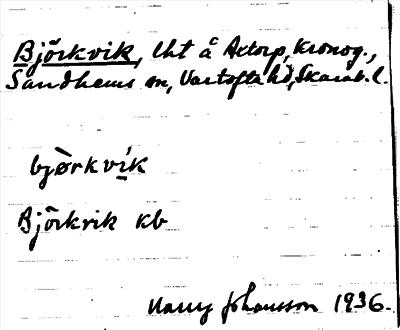 Björkvik, lht å Axtorp, Kronog.,
Sandhems sn, Vartofta hd, Skarab. l.
bjòrkvík
Björkvik kb
Harry Johansson 1936.